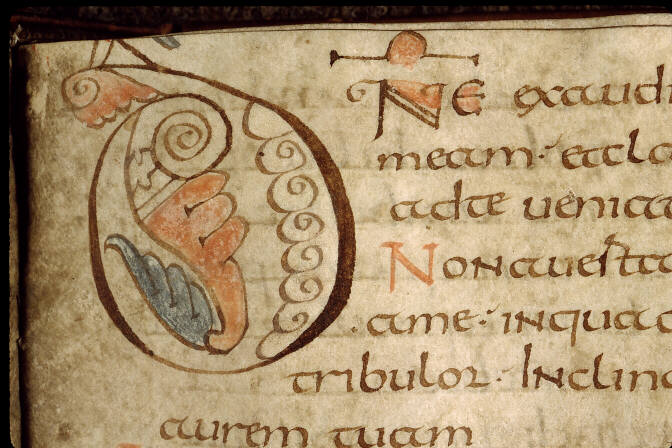 DNE exaudi
meam· et cla
ad te venia
Non avesta
a me· in qua
tribulor· Inclin
aurem tuam